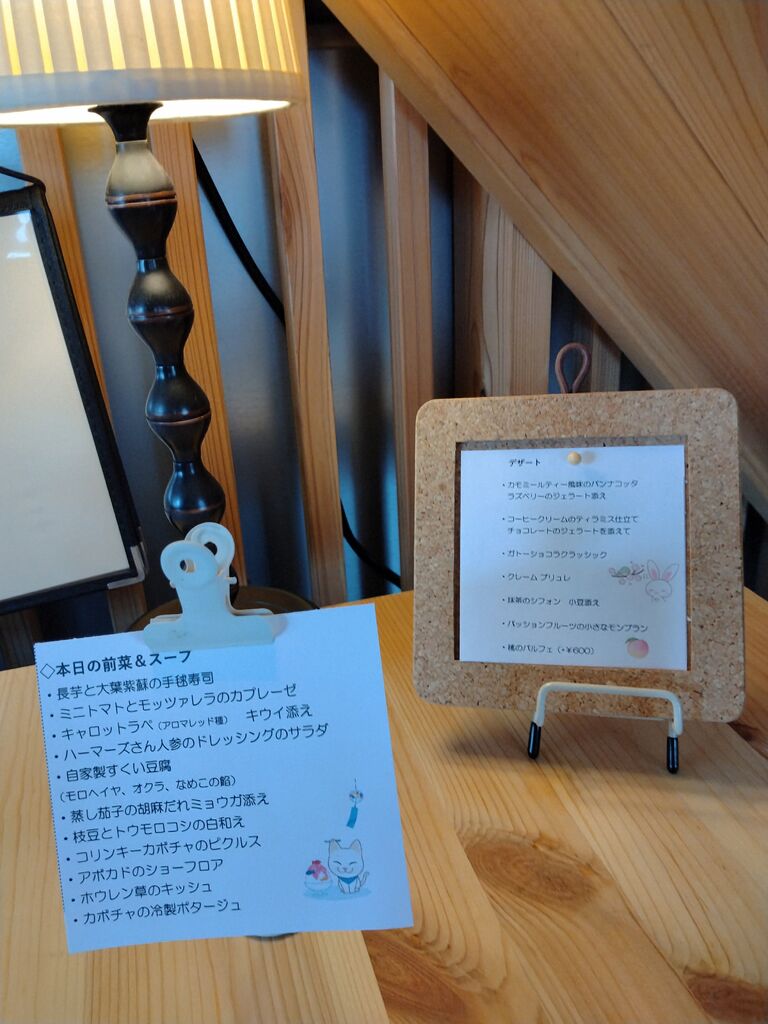 ◇本日の前菜＆スープ
・長芋と大葉紫蘇の手毬寿司
・ミニトマトとモッツァレラのカプレーゼ
・キャロットラペ（アロマレッド種） キウイ添え
・ハーマーズさん人参のドレッシングのサラダ
・自家製すくい豆腐
（モロヘイヤ、オクラ、なめこの餡）
・蒸し茄子の胡麻だれミョウガ添え
・枝豆とトウモロコシの白和え
・コリンキーカボチャのピクルス
・アボカドのショーフロア
・ホウレン草のキッシュ
・カボチャの冷製ポタージュ
デザート
・カモミールティー風味のパンナコッタ
ラズベリーのジェラート添え
・コーヒークリームのティラミス仕立て
チョコレートのジェラートを添えて
・ガトーショコラクラッシック
・クレーム ブリュレ
・抹茶のシフォン 小豆添え
・パッションフルーツの小さなモンブラン
・桃のパルフェ（＋￥600）